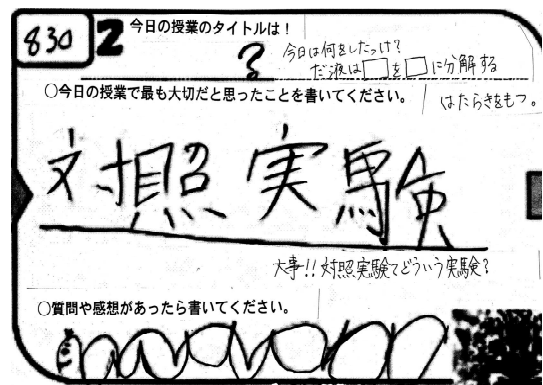 830 2 今日の授業のタイトルは！
る 今日は何をしたっけ？
だ液は□を□に分解する
○今日の授業で最も大切だと思ったことを書いてください。 はたらきをもつ。
対照実験
大事!! 対照実験てどういう実験？
○質問や感想があったら書いてください。